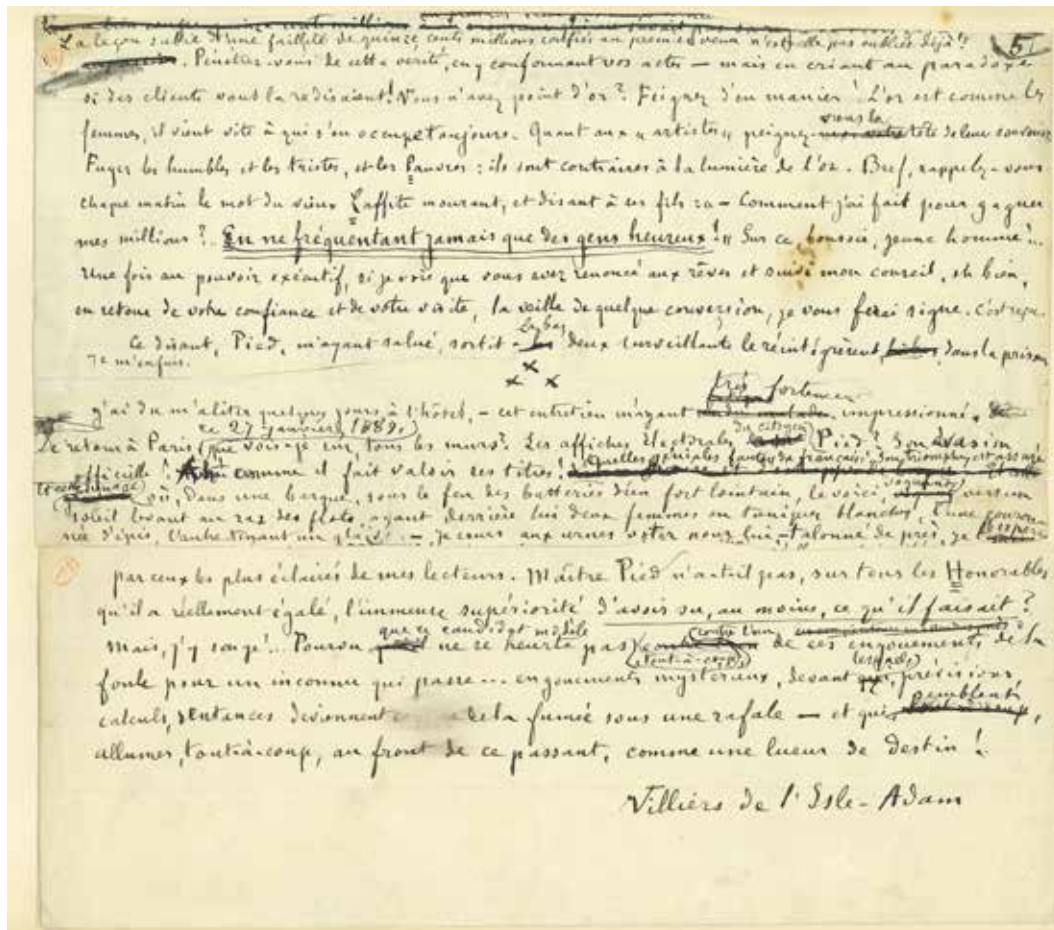 La leçon subie d'une faillite de quinze cents millions confiés au premier venu n'est-elle pas oubliée déjà!!
5
Pénétrez-vous de cette vérité, en y conformant vos actes — mais en criant au paradoxe
si des clients vous la redisaient! Vous n'avez point d'or? Feignez d'en manier! L'or est comme les
femmes, il vient vite à qui s'en occupe toujours. Quant aux « artistes », peignez-vous la tête de leur souvenir
Fuyez les humbles et les tristes, et les Pauvres : ils sont contraires à la lumière de l'or. Bref, rappelez-vous
chaque matin le mot du vieux Laffite mourant, et disant à ses fils : « — Comment j'ai fait pour gagner
mes millions? En ne fréquentant jamais que des gens heureux! » Sur ce, bonsoir, jeune homme!...
Une fois au pouvoir exécutif, si je vois que vous avez renoncé aux rêves et suivi mon conseil, eh bien,
en retour de votre confiance et de votre visite, la veille de quelque conversion, je vous ferai signe.
Ce disant, Pied, m'ayant salué, sortit — là bas deux surveillants le réintégrèrent, dans la prison
Je m'enfuis.
x x x
J'ai dû m'aliter quelques jours, à l'hôtel, — cet entretien m'ayant très fortement impressionné.
De retour à Paris ce 27 janvier 1889, que vois-je sur tous les murs? Les affiches électorales du citoyen Pied! Son évasion
officielle! comme il fait valoir ses titres! Quelles géniales fautes de français! Son triomphe est assuré
où, dans une barque, sous le feu des batteries d'un fort lointain, le voici, voguant vers un
soleil levant au raz des flots, ayant derrière lui deux femmes en tuniques blanches, l'une couron-
née d'épis, l'autre tenant un glaive. — Je cours aux urnes voter pour lui, — talonné de près, je l'espère
par ceux les plus éclairés de mes lecteurs. Maître Pied n'a-t-il pas, sur tous les Honorables
qu'il a réellement égalé, l'immense supériorité d'avoir su, au moins, ce qu'il faisait?
Mais, j'y songe!... Pourvu que ce candidat modèle ne se heurte pas tout-à-coup contre l'un de ces engouements de la
foule pour un inconnu qui passe... engouements mystérieux, devant lesquels prévisions,
calculs, sentances deviennent de la fumée sous une rafale — et qui semblent
allumer, tout-à-coup, au front de ce passant, comme une lueur de destin!
Villiers de l'Isle-Adam